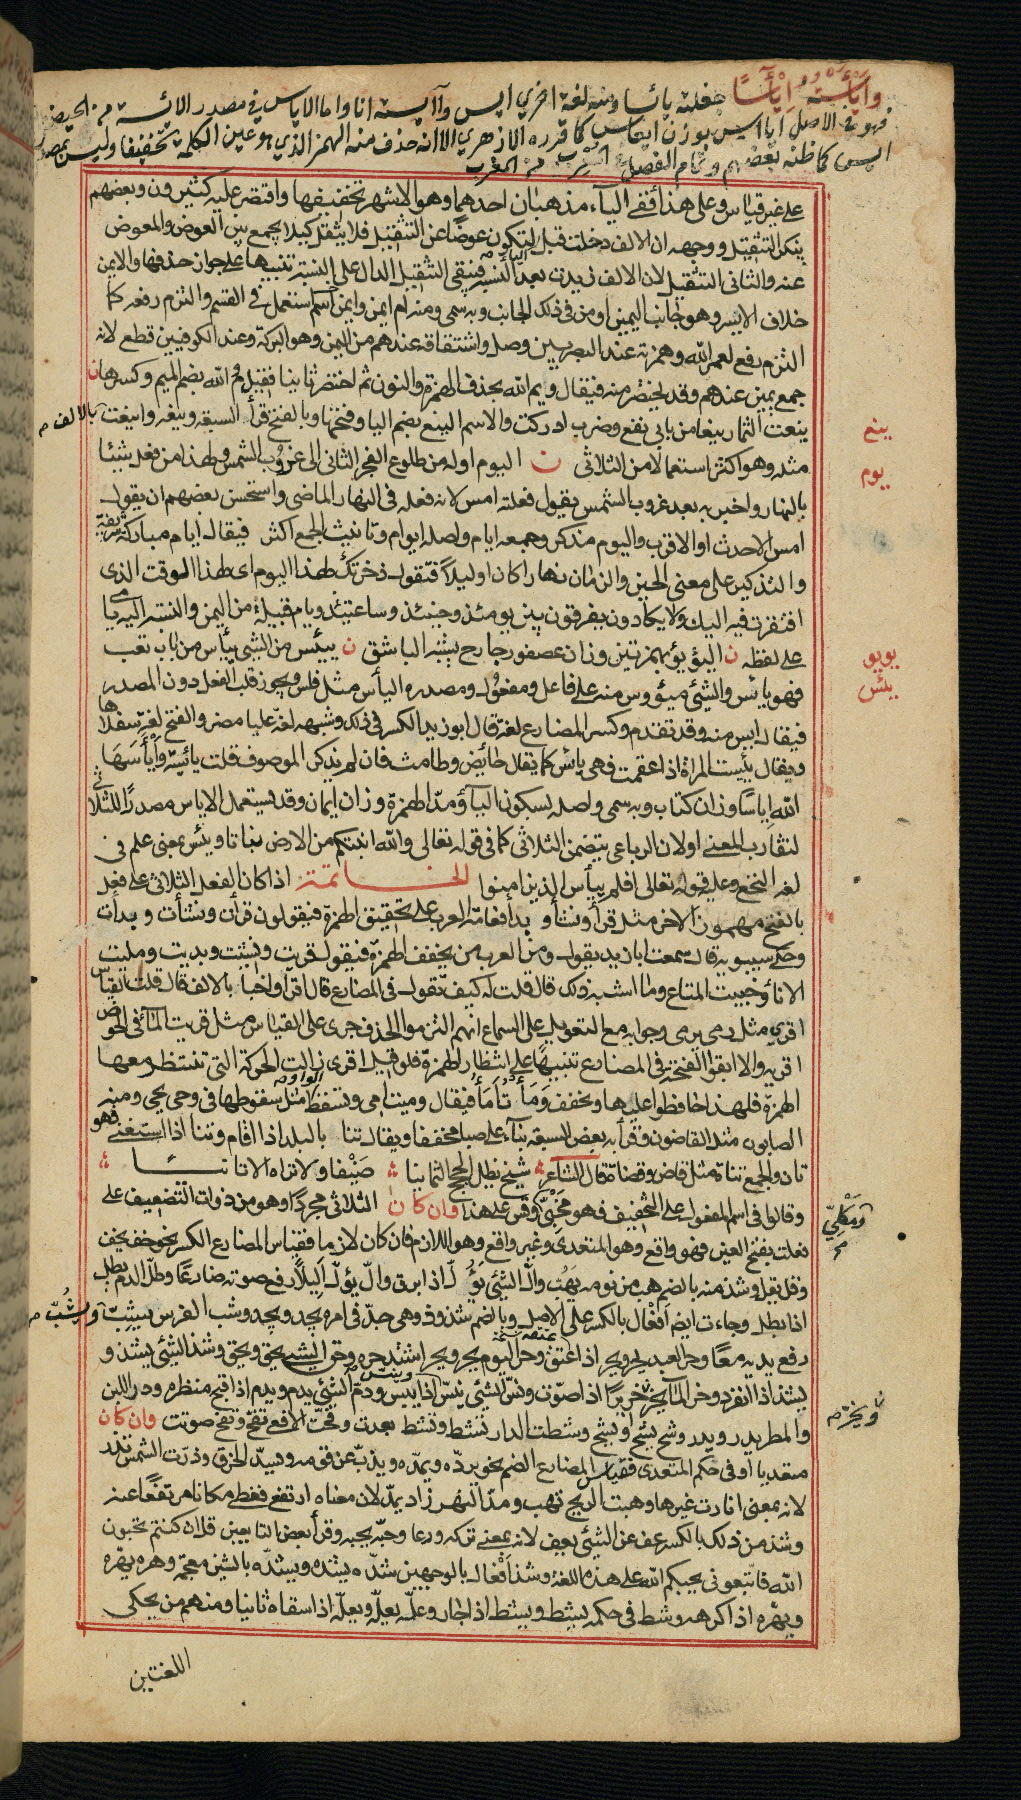 وايأسته إيآسًا جعلته يائسا ومنه لغة اخري ايس وآايسته انا واما الاياس في مصدر الآئسة من الحيض
فهو في الاصل ايااس بوزن ايعاس كما قرره الازهري الا انه حذف منه الهمز الذي هو عين الكلمة تخفيفا وليس بمصدر
ايس كما ظنه بعضهم وتمام الفصل في المغرب
على غير قياس وعلى هذا ففي الياء مذهبان احدهما وهو الاشهر تخفيفها واقتصر عليه كثيرون وبعضهم
ينكر التثقيل ووجهه ان الالف دخلت قبل الياء لتكون عوضا عن التثقيل فلا يثقل كيلا يجمع بين العوض والمعوض
عنه والثاني التثقيل لان الالف زيدت بعد النسبة فيبقى التثقيل الدال على النسبة تنبيها على جواز حذفها والايمن
خلاف الايسر وهو جانب اليمين او من في ذلك الجانب وبه سمي ومنه ام ايمن وايمن اسم استعمل في القسم والتزم رفعه كما
التزم رفع لعمر الله وهمزته عند البصريين وصل واشتقاقه عندهم من اليمن وهو البركة وعند الكوفيين قطع لانه
جمع يمين عندهم وقد يختصر منه فيقال وايم الله بحذف الهمزة والنون ثم اختصر ثانيا فقيل م الله بضم الميم وكسرها ن
ينعت الثمار ينعا من بابي نفع وضرب ادركت والاسم الينع بضم اليا وفتحها وبالفتح قرأ السبعة وينعه واينعت بالالف
مثله وهو اكثر استعمالا من الثلاثي ن اليوم اوله من طلوع الفجر الثاني الى غروب الشمس ولهذا من فعل شيئا
بالنهار واخبر به بعد غروب الشمس يقول فعلته امس لانه فعله في النهار الماضي واستحسن بعضهم ان يقول
امس الاحدث او الاقرب واليوم مذكر وجمعه ايام واصله ايوام وتانيث الجمع اكثر فيقال ايام مباركة شريفة
والتذكير على معنى الحين والزمان نهارا كان او ليلا فتقول ذخرتك لهذا اليوم اي لهذا الوقت الذي
افتقرت فيه اليك ولا يكادون يفرقون بين يومئذ وحينئذ وساعتئذ ويام قبيلة من اليمن والنسبة اليه يامي
على لفظه ن اليؤيؤ بهمزتين وزان عصفور جارح يشبه الباشق ن يئس من الشئ ييأس من باب تعب
فهو يائس والشئ ميؤوس منه على فاعل ومفعول ومصدره اليأس مثل فلس ويجوز قلب الفعل دون المصدر
فيقال ايس منه وقد تقدم وكسر المضارع لغة قال ابو زيد الكسر في ذلك وشبهه لغة عليا مضر والفتح لغة سفلاها
ويقال يئست المراة اذا عقمت فهي يائس كما يقال حائض وطامث فان لم يذكر الموصوف قلت يائسة وايأسها
الله اياسا وزان كتاب وبه سمي واصله بسكون الياء ومد الهمزة وزان ايمان وقد يستعمل الاياس مصدرا للثلاثي
لتقارب المعنى او لان الرباعي يتضمن الثلاثي كما في قوله تعالى والله انبتكم من الارض نباتا ويئس بمعنى علم في
لغة النخع وعليه قوله تعالى افلم ييأس الذين امنوا الخاتمة اذا كان الفعل الثلاثي على فعل
بالفتح مهموز الاخر مثل قرأ ونشأ وبدأ فعامة العرب على تحقيق الهمزة فيقولون قرأت ونشأت وبدأت
وحكى سيبويه قال سمعت ابا زيد يقول ومن العرب من يخفف الهمزة فيقول قريت ونشيت وبديت ومليت
الانأ وخبيت المتاع وما اشبه ذلك قال قلت له كيف تقول في المضارع قال اقرأ واخبا بالالف قال قلت القياس
اقري مثل رمى يرمي وجوابه مع التعويل على السماع انهم التزموا الحذف جرى على القياس مثل قريت الماء في الحوض
اقريه والا ابقوا الفتحة في المضارع تنبيها على انتظار الهمزة فلو قيل اقرى زالت الحركة التي تنتظر معها
الهمزة فلهذا حافظوا عليها وتخفف ومأ تأمأ فيقال وميت امي وتسقط الواو مثل سقوطها في وحى يحي ومنه
الصابون مثل القاضون وقرأ به بعض السبعة بناء على صبا مخففا ويقال تنا بالبلد اذا اقام وتنا اذا استغنى فهو
تان والجمع تناة مثل قاض وقضاة قال الشاعر شيخ يظل الحجج الثمانيا ضيفا ولا تراه الا تانيا
وقالوا في اسم المفعول على التخفيف فهو مخبي ومكلي وقس على هذا وان كان الثلاثي مجردا وهو من ذوات التضعيف على
فعلت بفتح العين فهو واقع وهو المتعدى وغير واقع وهو اللازم فان كان لازما فقياس المضارع الكسر نحو خف يخف
وقل يقل وشذ منه بالضم هب من نومه يهب وال الشئ يؤل اذا برق وال يؤل اليلا رفع صوته ضارعا وطل الدم يطل
اذا بطل وجاءت ايضا افعال بالكسر على الاصل وبالضم شذوذا وهي جد في امره يجد ويجد وشب الفرس يشب ويشب
رفع يديه معا وحر العبد يحر ويحر اذا عتق وحر اليوم يحر ويحر اشتد حره وحق الشئ يحق ويحق وشذ الشئ يشذ و
يشذ اذا انفرد وخر الماء يخر ويخر خريرا اذا صوت ونس الشئ ينس وينس اذا يبس ودم الشئ يدم ويدم اذا قبح منظره ودر اللبن
والمطر يدر ويدر وشح يشح ويشح وشطت الدار تشط وتشط بعدت وفحت الافعى تفح وتفح صوتت وان كان
متعديا او في حكم المتعدي فقياس المضارع الضم نحو يرده ويمده ويذب عن قومه ويسد الخرق وذرت الشمس تذر
لانه بمعنى انارت غيرها وهبت الريح تهب ومد النهر زاد يمد لان معناه ارتفع فغطى مكانا مرتفعا عنه
وشذ من ذلك بالكسر عف عن الشئ يعف لانه بمعنى تركه ورعا وحبه يحبه وقرأ بعض التابعين قل ان كنتم تحبون
الله فاتبعوني يحبكم الله على هذه اللغة وشذ افعال بالوجهين شده يشده ويشده بالشين معجمة وهره يهره
ويهره اذا كرهه وشط في حكمه يشط ويشط اذا جار وعله يعله ويعله اذا سقاه ثانيا ومنهم من يحكي
اللغتين
ينع
يوم
يويو
يئس
ومكلي
ويخر